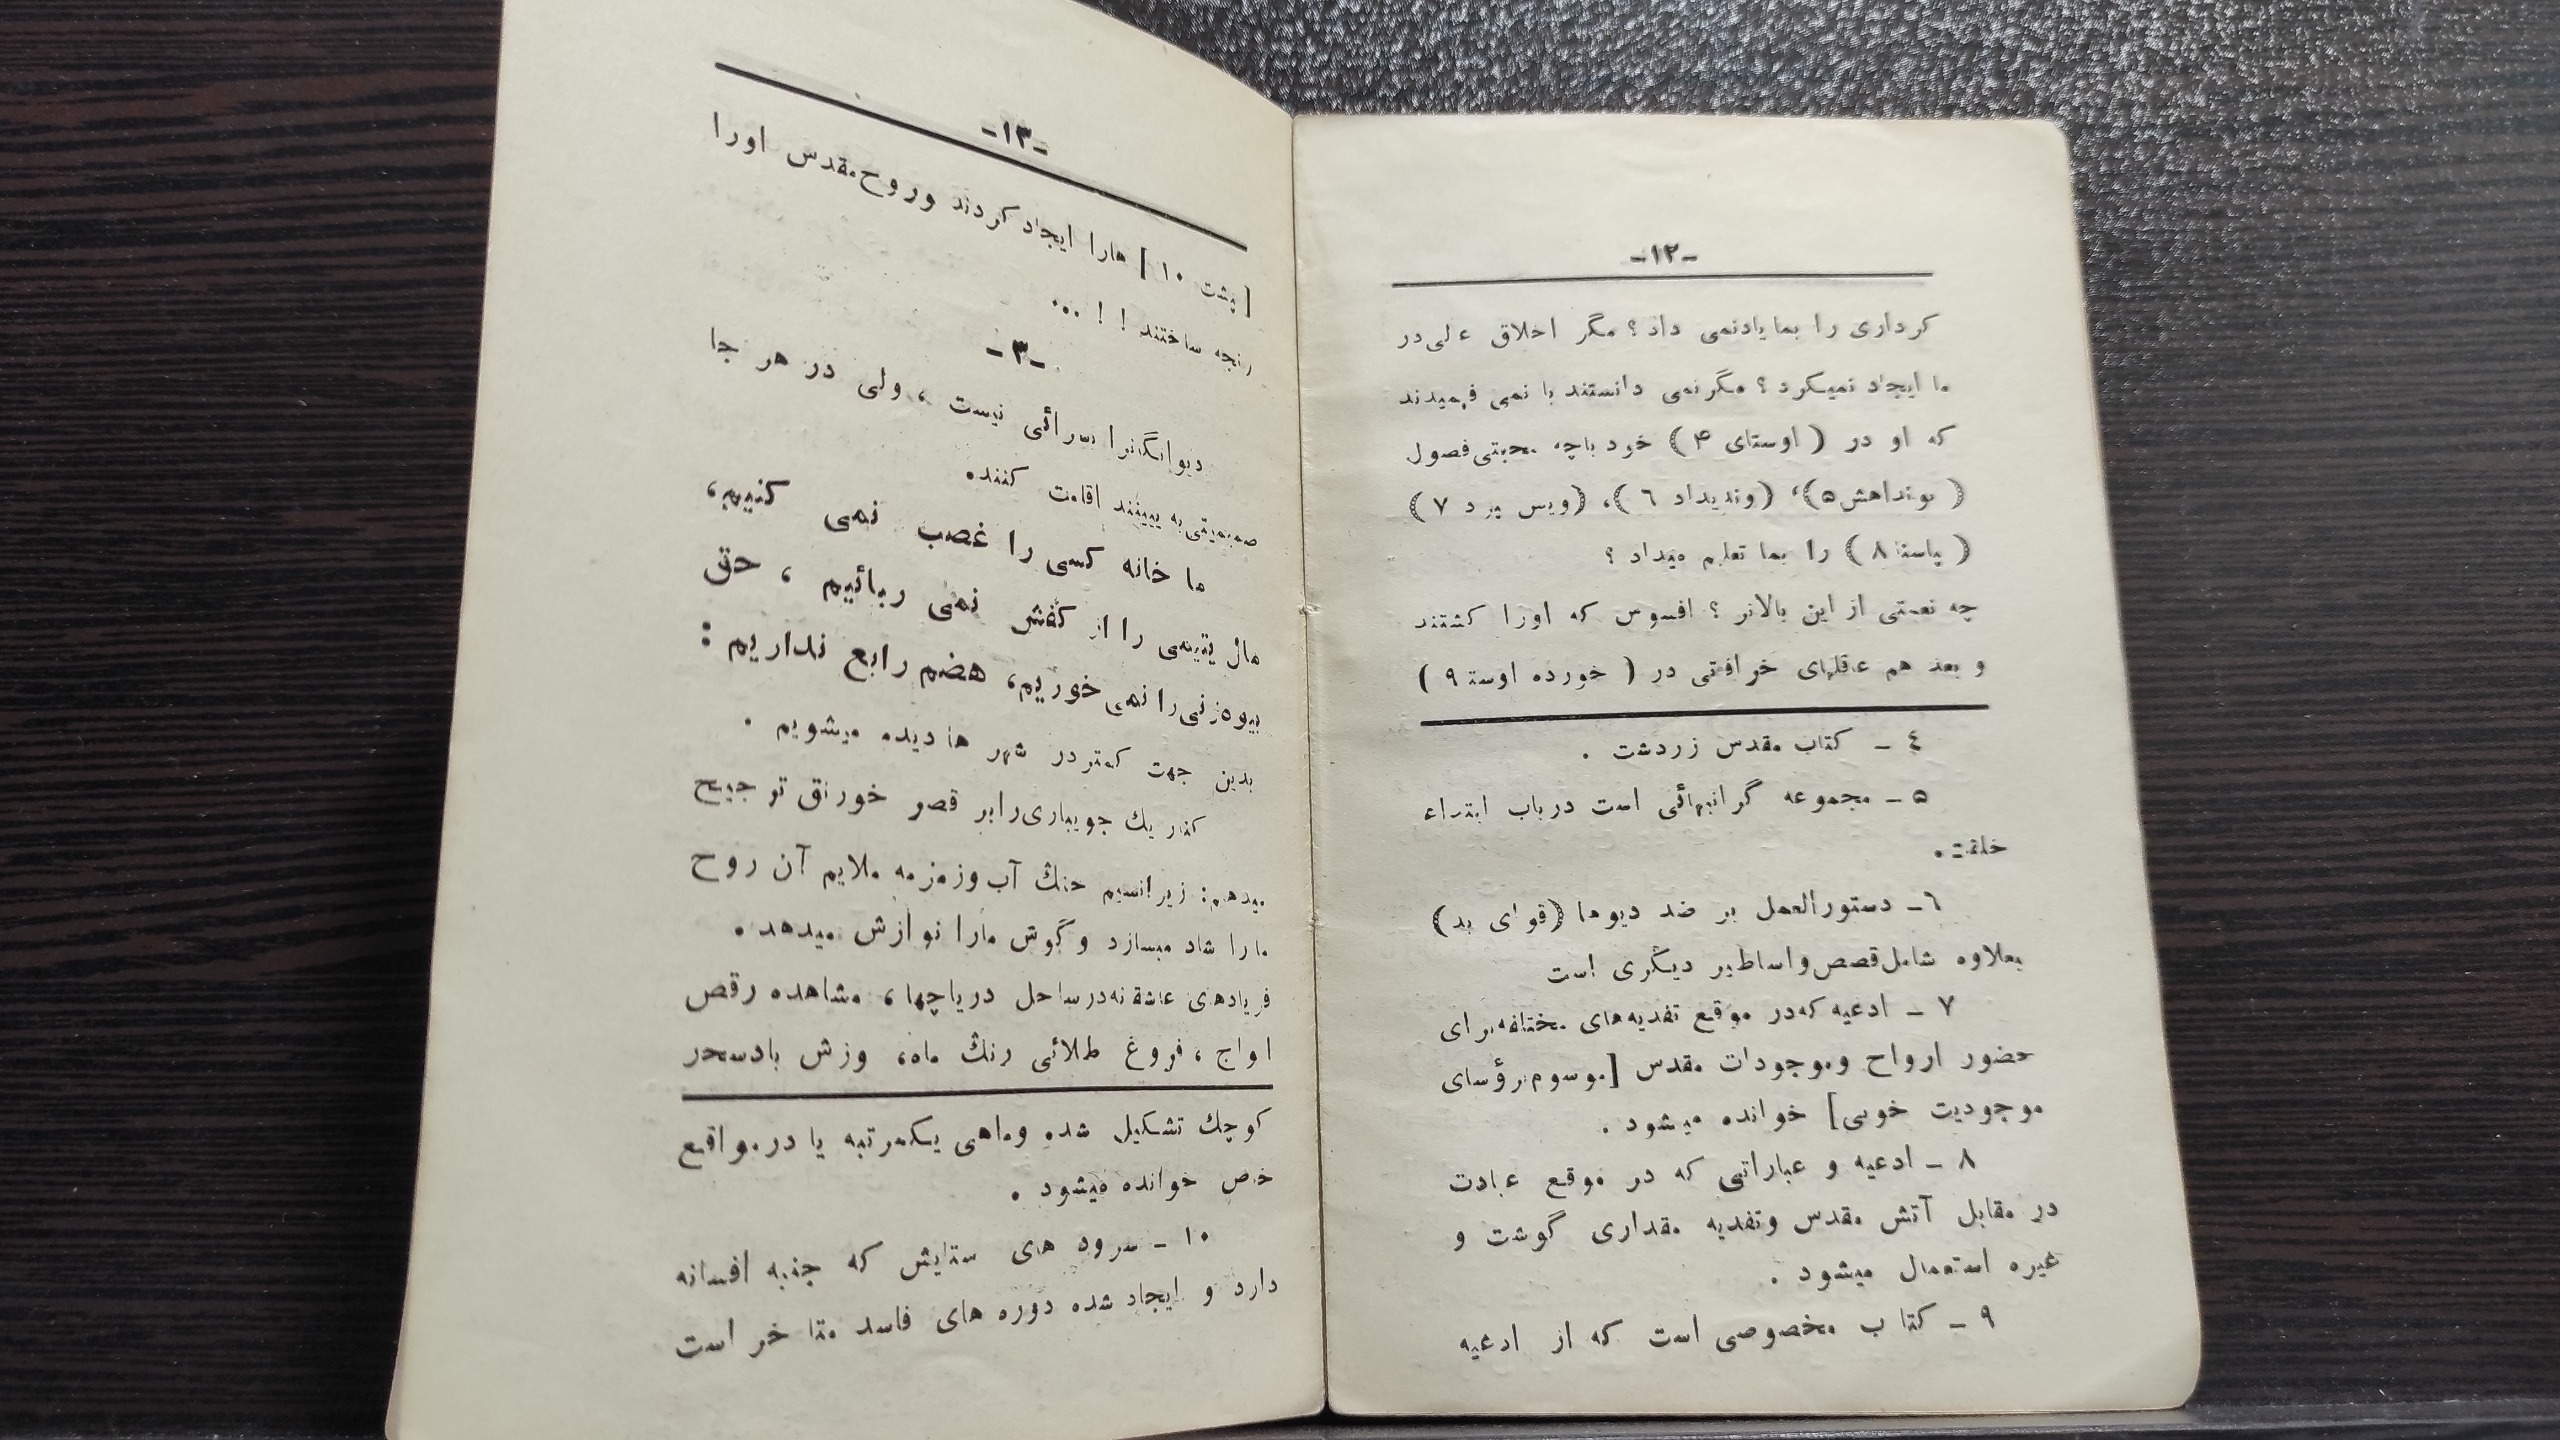 -۱۲-
کرداری را بما یادنمی داد؟ مگر اخلاق عالی در
ما ایجاد نمیکرد؟ مگر نمی دانستند یا نمی فهمیدند
که او در (اوستای ۴) خود باچه محبتی فصول
(بونداهش۵)، (وندیداد ٦)، (ویس پرد ۷)
(یاسنا ۸) را بما تعلیم میداد؟
چه نعمتی از این بالاتر؟ افسوس که اورا کشتند
و بعد هم عاقلهای خرافتی در (خورده اوستا ۹)
٤ - کتاب مقدس زردشت .
۵ - مجموعه گرانبهائی است درباب ابتداء
خلقت .
٦- دستورالعمل بر ضد دیوها (قوای بد)
بعلاوه شامل قصص واساطیر دیگری است
۷ - ادعیه که در موقع تفدیه های مختلفه برای
حضور ارواح وموجودات مقدس [موسوم برؤسای
موجودیت خوبی] خوانده میشود .
۸ - ادعیه و عباراتی که در موقع عبادت
در مقابل آتش مقدس وتفدیه مقداری گوشت و
غیره استعمال میشود .
۹ - کتاب مخصوصی است که از ادعیه
-۱۳-
[یشت ۱۰] هارا ایجاد کردند وروح مقدس اورا
رنجه ساختند !! ...
-۳-
دیوانگانرا سرائی نیست ، ولی در هر جا
صمیمیتی به بینند اقامت کنند.
ما خانه کسی را غصب نمی کنیم،
مال یتیمی را از کفش نمی ربائیم ، حق
بیوه زنی را نمی خوریم، هضم رابع نداریم :
بدین جهت کمتر در شهر ها دیده میشویم .
کنار یك جویباری را بر قصر خورنق ترجیح
میدهیم: زیرا نسیم خنك آب وزمزمه ملایم آن روح
ما را شاد میسازد وگوش مارا نوازش میدهد .
فریادهای عاشقانه در ساحل دریاچها ، مشاهده رقص
امواج ، فروغ طلائی رنك ماه، وزش بادسحر
کوچك تشکیل شده وماهی یکمرتبه یا در مواقع
خاص خوانده میشود .
۱۰ - سرود های ستایش که جنبه افسانه
دارد و ایجاد شده دوره های فاسد متا خر است